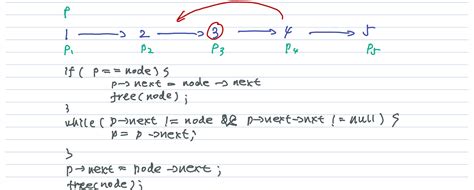 P
1 → 2 → 3 → 4 → 5
P1 P2 P3 P4 P5
if ( p == node) {
p→next = node → next
free(node) ;
}
while ( p→next != node && p→next→next != null) {
p = p →next;
}
p→next = node →next ;
free(node) ;